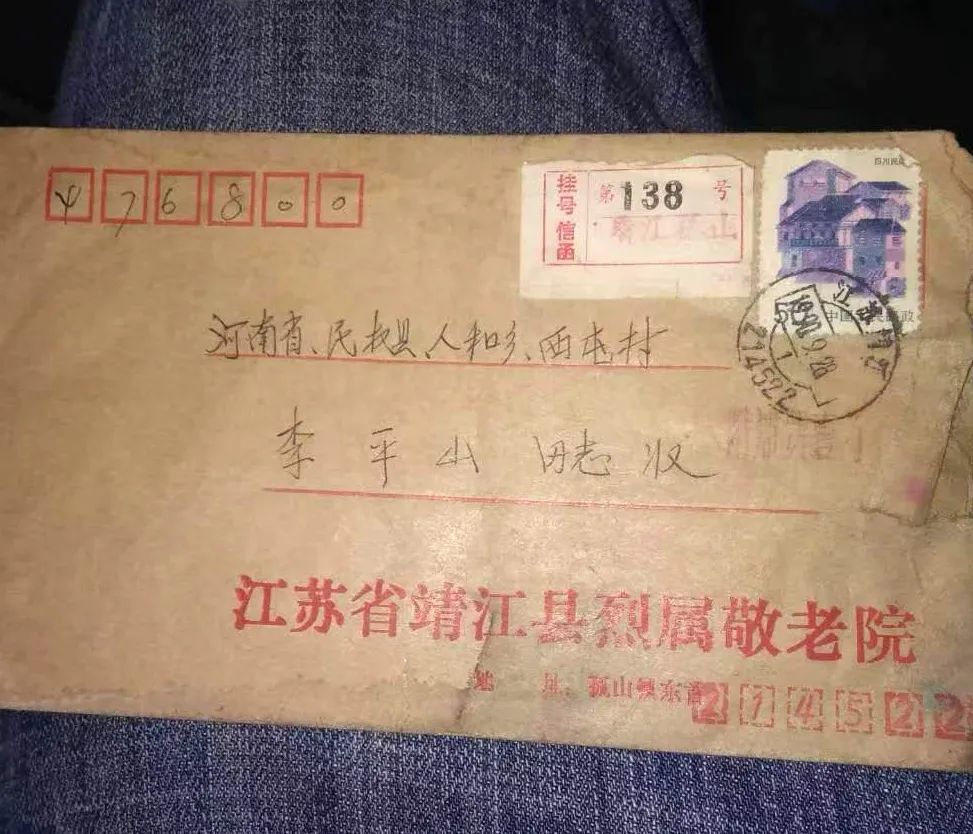 476800
挂号信函
第138号
靖江孤山
四川民居
中国人民邮政
江苏靖江
1991.9.28
214522
河南省、民权县、人和乡、西屯村
李平山同志收
江苏省靖江县烈属敬老院
地 址：孤山镇东首
214522